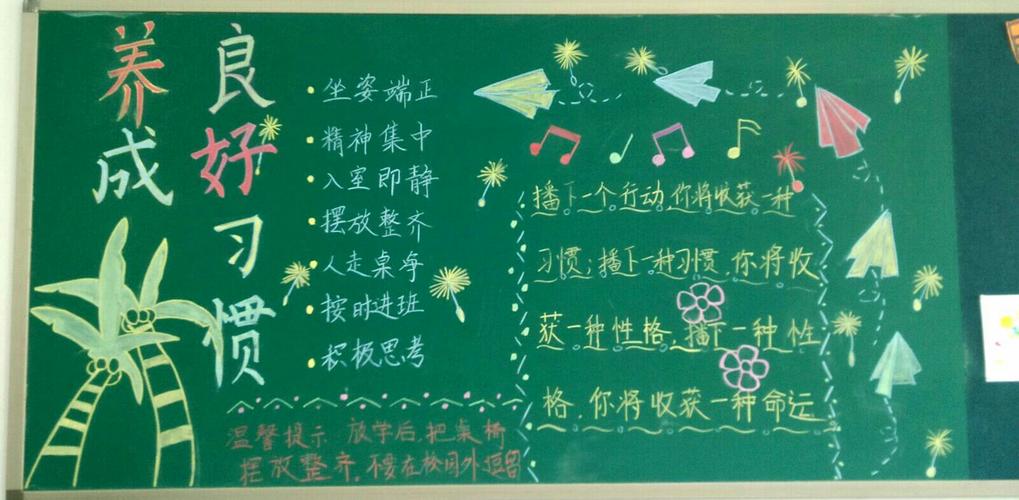 养成
良好习惯
坐姿端正
精神集中
入室即静
摆放整齐
人走桌净
按时进班
积极思考
播下一个行动,你将收获一种
习惯;播下一种习惯,你将收
获一种性格,播下一种性
格,你将收获一种命运
温馨提示:放学后,把桌椅
摆放整齐,不要在校园外逗留